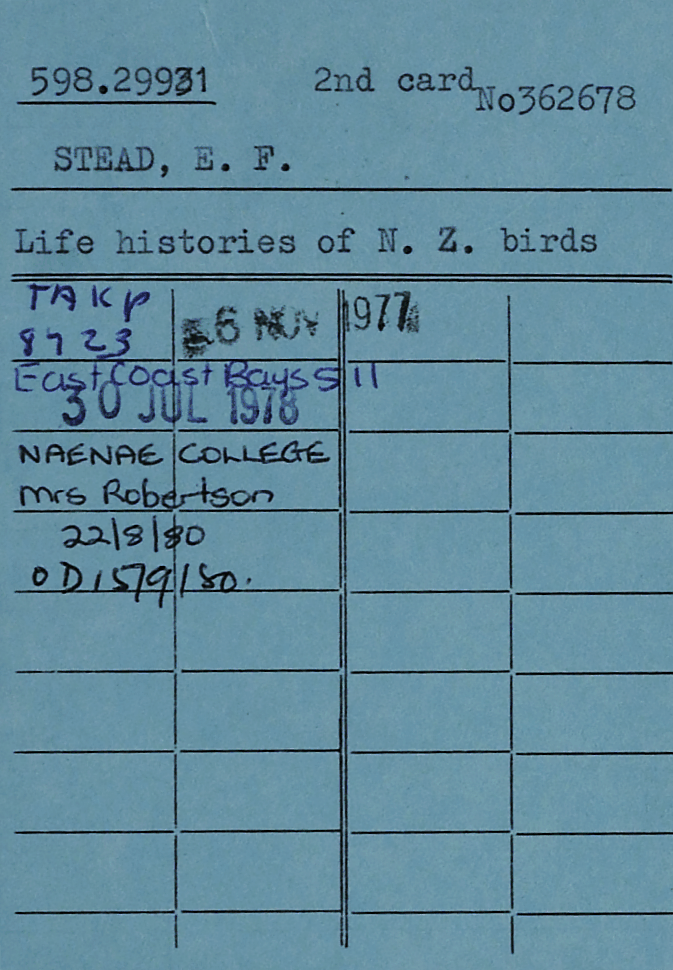 598.29931
2nd card
No362678
STEAD, E. F.
Life histories of N. Z. birds
TAKP
8723
6 NOV 1977
East Coast Bays 511
30 JUL 1978
NAENAE COLLEGE
Mrs Robertson
22/8/80
OD1579/80.